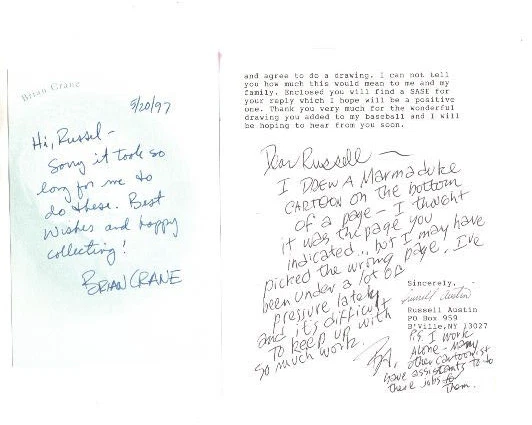 Brian Crane
5/20/97
Hi, Russel-
Sorry it took so
long for me to
do these. Best
wishes and happy
collecting!
BRIAN CRANE
and agree to do a drawing. I can not tell
you how much this would mean to me and my
family. Enclosed you will find a SASE for
your reply which I hope will be a positive
one. Thank you very much for the wonderful
drawing you added to my baseball and I will
be hoping to hear from you soon.
Dear Russell —
I DREW A MARMADUKE
CARTOON ON THE BOTTOM
OF a page - I thought
it was the page you
indicated... but I may have
picked the wrong page. I've
been under a lot of
pressure lately
and it's difficult
TO keep up with
so much work.
BA
Sincerely,
Russell Austin
Russell Austin
PO Box 959
B'Ville, NY 13027
P.S. I work
alone - many
other cartoonist
have assistants to do
these jobs for
them.